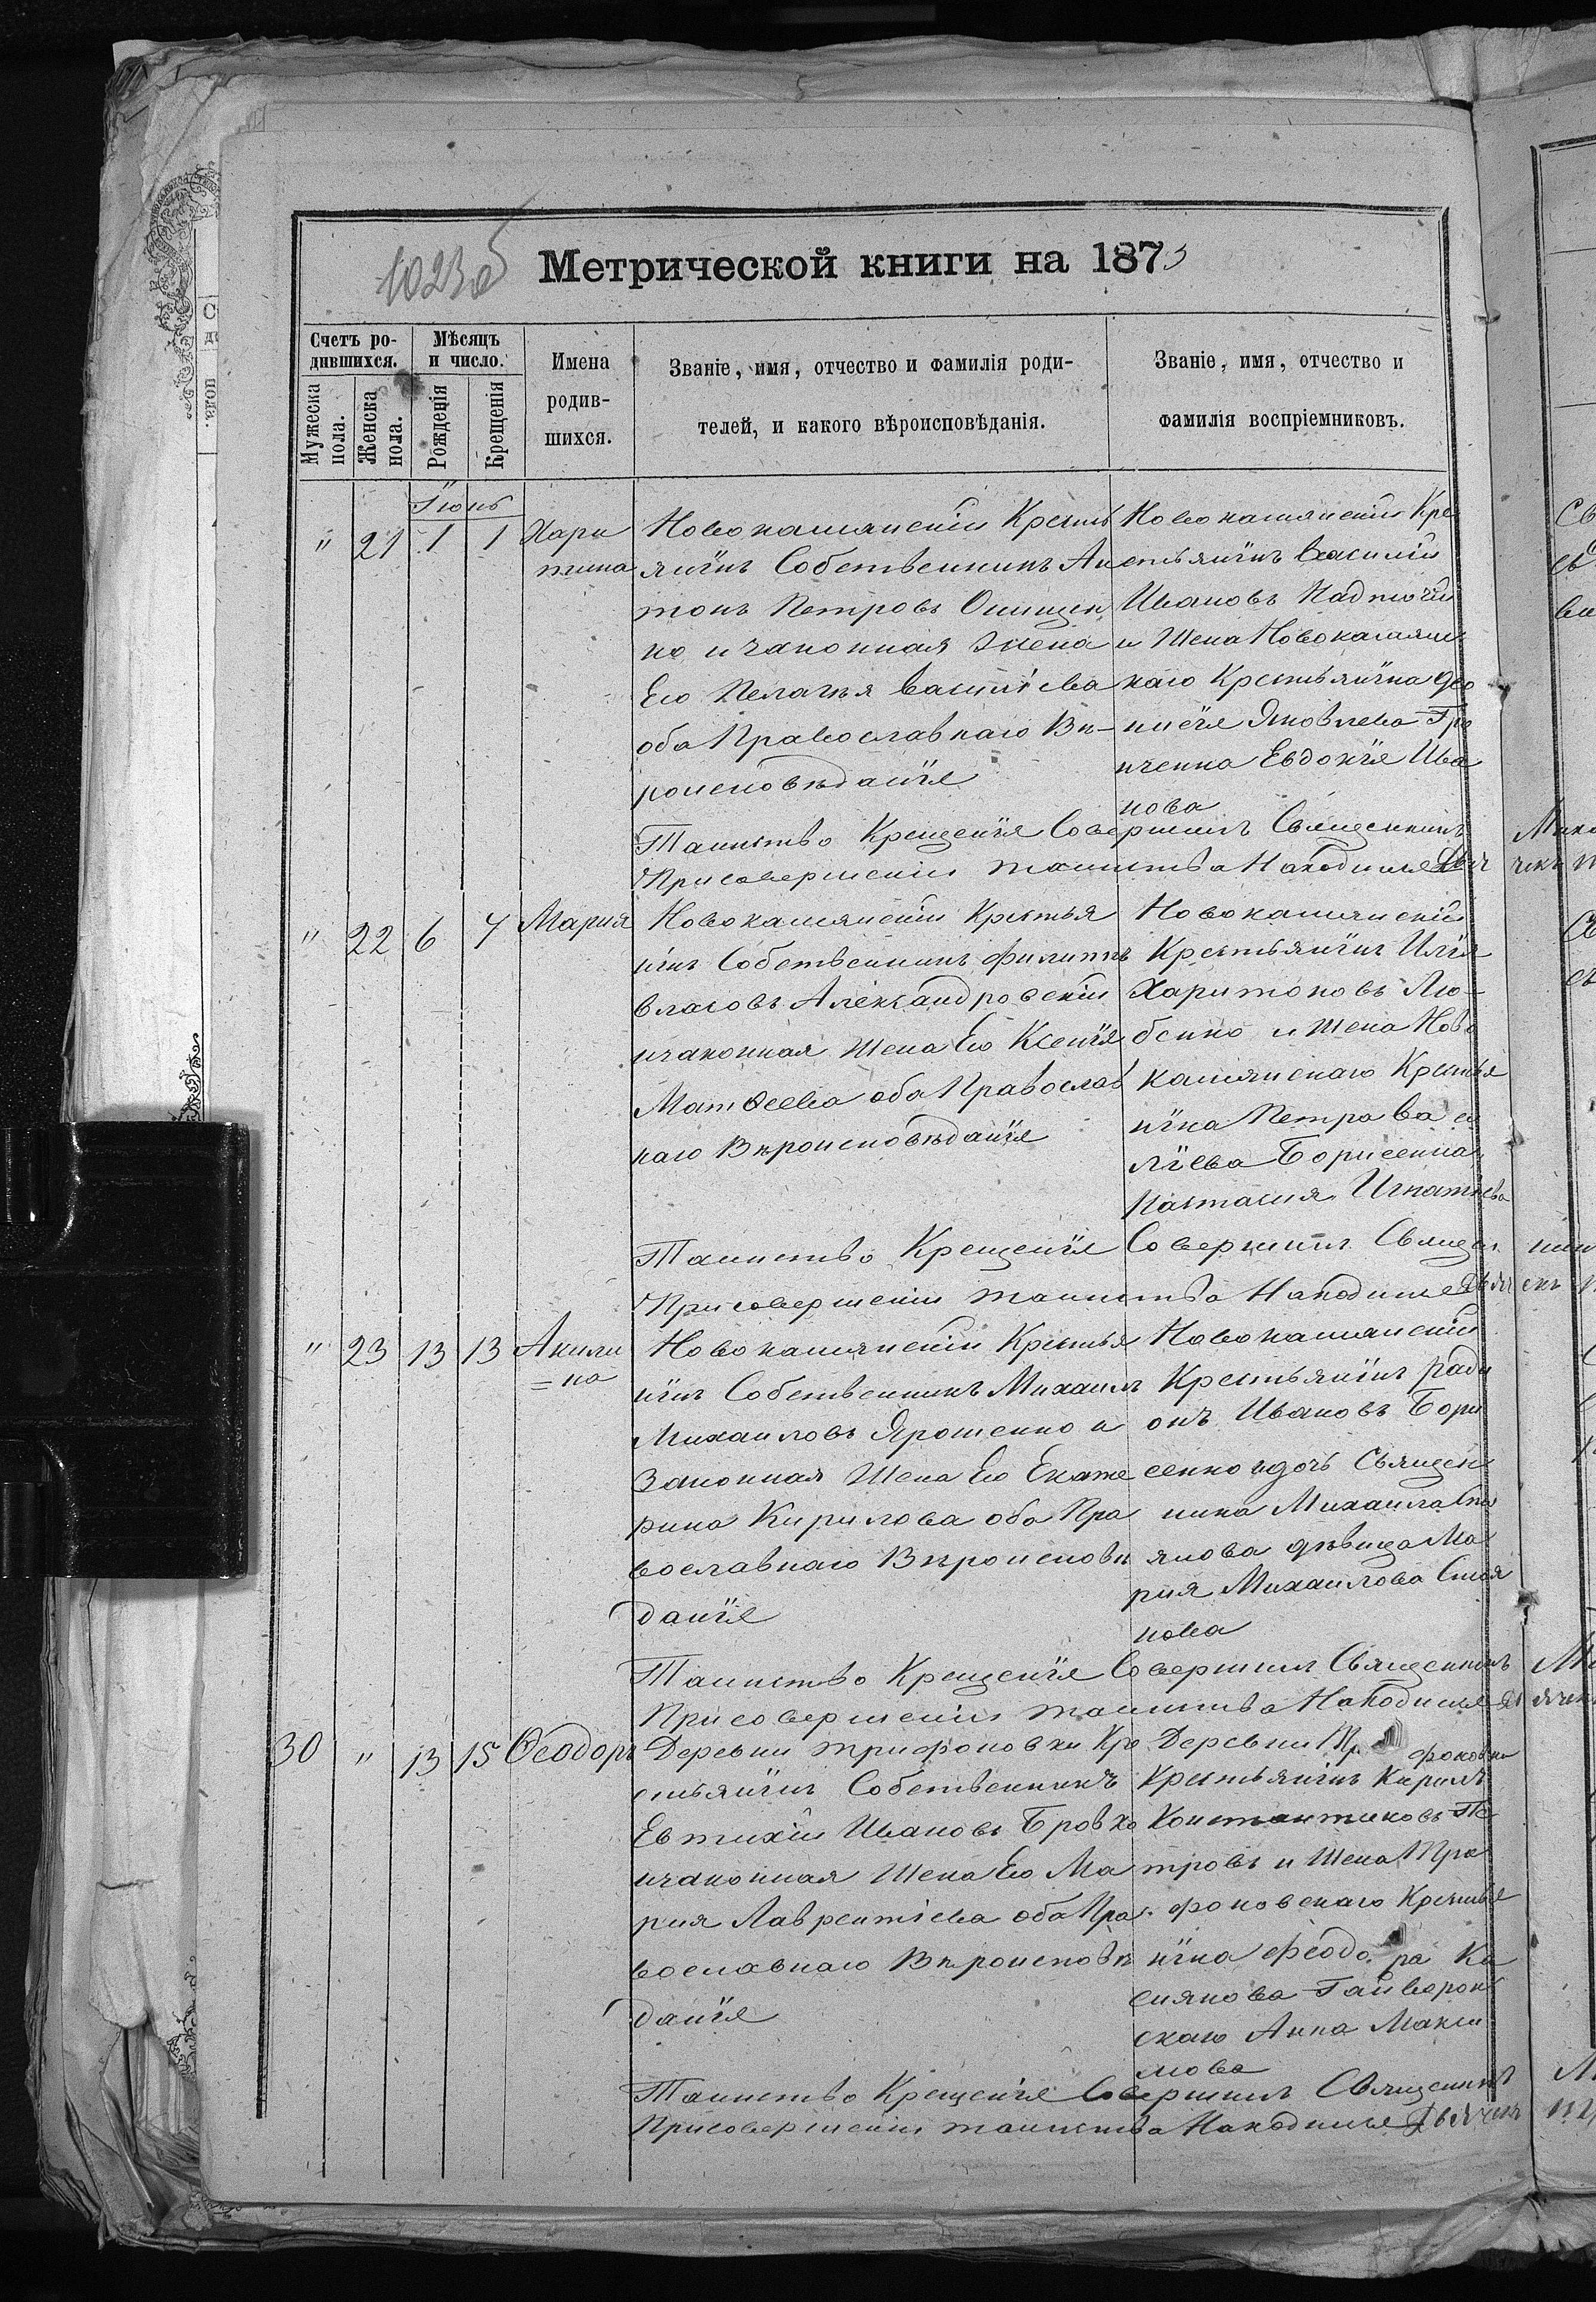 1023об
Метрической книги на 1873
Счетъ родившихся.
Мѣсяцъ и число.
Имена родившихся.
Званіе, имя, отчество и фамилія родителей, и какого вѣроисповѣданія.
Званіе, имя, отчество и фамилія воспріемниковъ.
Мужеска пола.
Женска пола.
Рожденія
Крещенія
Іюнь
" 21 1 1 Хари
тина
Новокашянскій Кресть
янинъ Собственникъ Ан
тонъ Петровъ Онищен
ко и законная Жена
Его Пелагѣя Василіева
оба Православнаго Вѣ-
роисповѣданія
Новокашянскій Кре
стьянинъ Василій
Ивановъ Надточій
и Жена Новокашянс
каго Крестьянина Део
нисія Яковлева Гре
Евдокія Ива
нова
Таинство Крещенія Совершилъ Священникъ
При совершеніи таинства Находился Дьяч
" 22 6 7 Мария
Новокашянскій Крестья
нинъ Собственникъ Филиппъ
Власовъ Александровскій
и законная Жена Его Ксенія
Матѳеева оба Православ
наго Вѣроисповѣданія
Новокашянскій
Крестьянинъ Илія
Харитоновъ Лю-
бенко и Жена Ново
кашянскаго Крестья
нина Петра Ва си
ліева Борисенка
Настасия Игнатіева
Таинство Крещенія Совершилъ Священ
При совершеніи таинства Находился Дьяч
" 23 13 13 Акили
=на
Новокашянскій Крестья
нинъ Собственникъ Михаилъ
Михаиловъ Ярошенко и
Законная Жена Его Екате
рина Кирилова оба Пра
вославнаго Вѣроисповѣ
данія
Новокашянскій
Крестьянинъ Ради
онъ Ивановъ Бори
сенко и дочь Священ
ника Михаила Сто
янова дѣвица Ма
рия Михаилова Стоя
нова
Таинство Крещенія Совершилъ Священникъ
При совершеніи таинства Находился Дь
30 " 13 15 Ѳеодоръ
Деревни Трифоновки Кре
стьянинъ Собственникъ
Евтихій Ивановъ Бровко
и законная Жена Его Ма
рия Лаврентіева оба Пра
вославнаго Вѣроисповѣ
данія
Деревни Тр фоновки
Крестьянинъ Кирилъ
Константиновъ Пе
тровъ и Жена Три
фоновскаго Крестья
нина Феодо ра Ка
сиянова Гайворонс
скаго Анна Макси
мова
Таинство Крещенія Совершилъ Священникъ
При совершеніи таинства Находился Дьячекъ